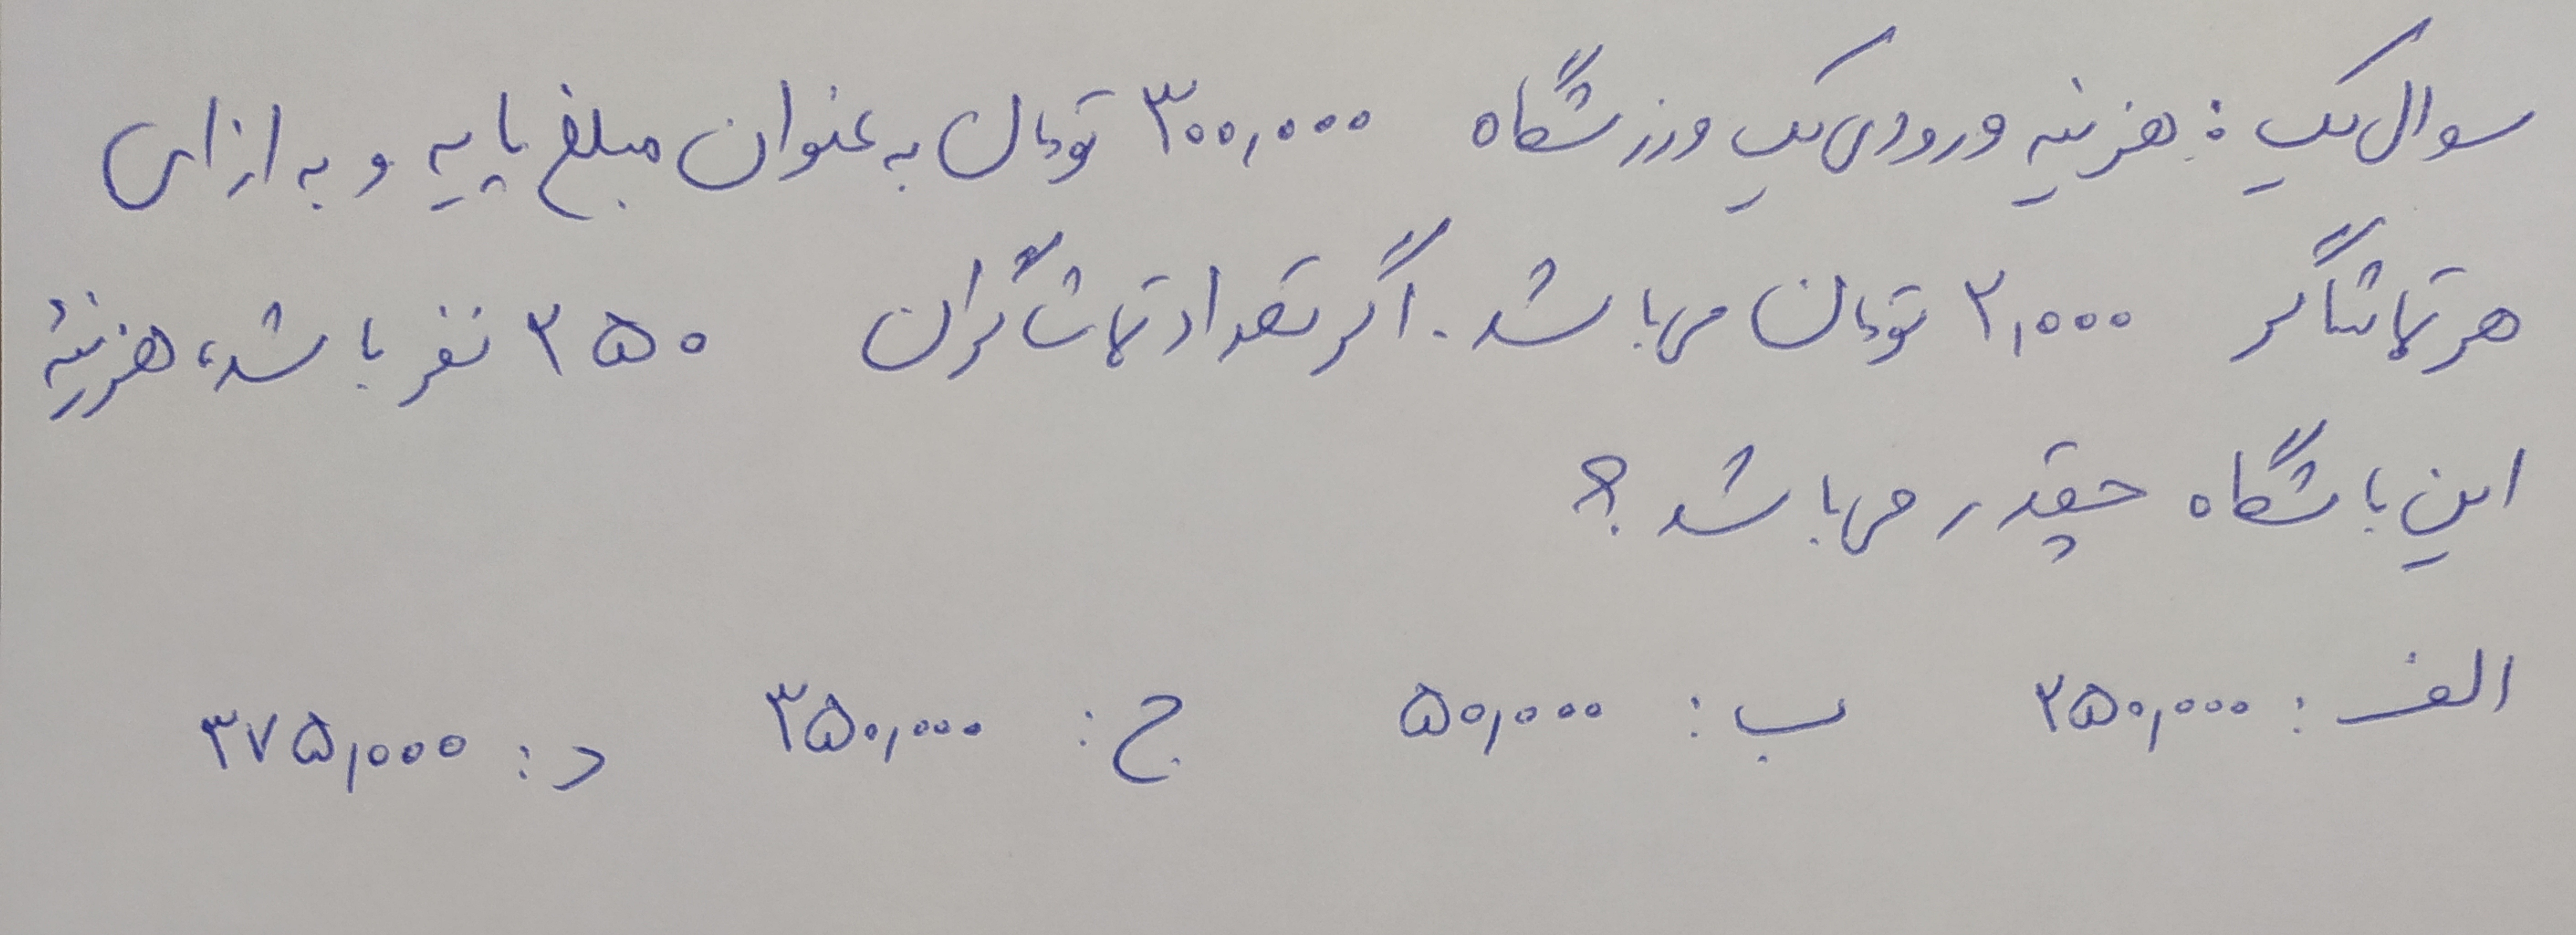 سوال یک: هزینه ورودی یک ورزشگاه ۳۰۰,۰۰۰ تومان به عنوان مبلغ پایه و به ازای
هر تماشاگر ۲,۰۰۰ تومان می‌باشد. اگر تعداد تماشاگران ۲۵۰ نفر باشد، هزینهٔ
این باشگاه چقدر می‌باشد؟
الف: ۲۵۰,۰۰۰ ب: ۵۰,۰۰۰ ج: ۳۵۰,۰۰۰ د: ۳۷۵,۰۰۰